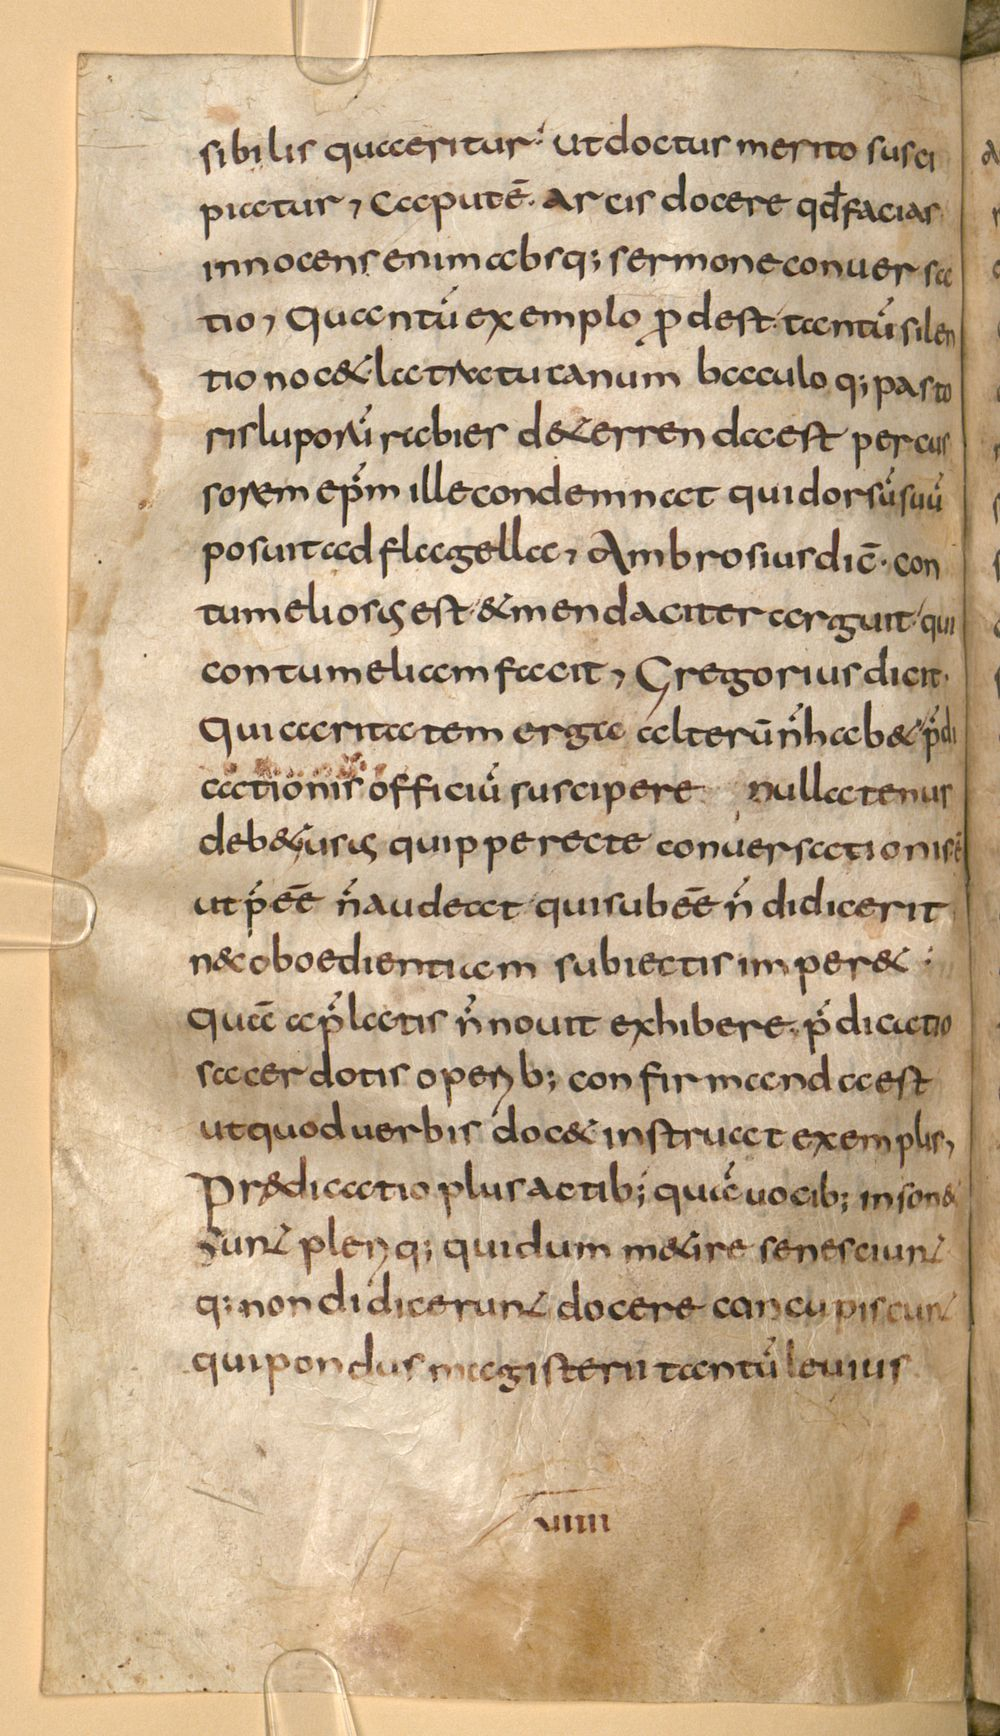 sibilis quaeritur; ut doctus merito susci
piatur, Caput ē. arcis docere qđ facias
innocens enim absq; sermone conuersa
tio, Quantū exemplo ꝓdest. tantū silen
tio noc& latratu canum baculo q; pasto
ris luporū rabies det&errenda est percus
sorem ep̄m ille condemnat qui dorsū suū
posuit ad flagella, Ambrosius dic̄. con
tumeliosus est & mendaciter arguit qui
contumeliam facit, Gregorius dicit.
Qui caritatem erga alterū n̄ hab& p̄di
cationis officiū suscipere nullatenus
deb& usus quippe recte conuersationis ē
ut p̄eē n̄ audeat qui subeē n̄ didicerit
nec oboedientiam subiectis imper& ;
quā a p̄latis n̄ nouit exhibere. p̄dicatio
sacerdotis operib; confirmanda est
ut quod uerbis doc& instruat exemplis,
Predicatio plus actib; quā uocib; inson&
Sunt pleriq; qui dum m&ire nesciunt
q; non didicerunt docere concupiscunt
qui pondus magisterii tantū leuius
uiiii